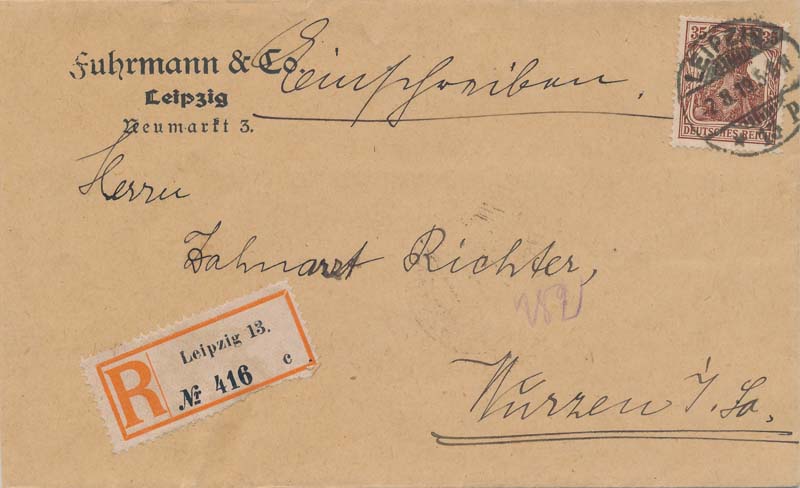 Fuhrmann & Co.
Leipzig
Neumarkt 3.
Einschreiben.
35 35
DEUTSCHES REICH
LEIPZIG
2.8.19.5-6N
* 13 P
Herrn
Zahnarzt Richter,
Wurzen i. Sa.
R
Leipzig 13.
№ 416 c